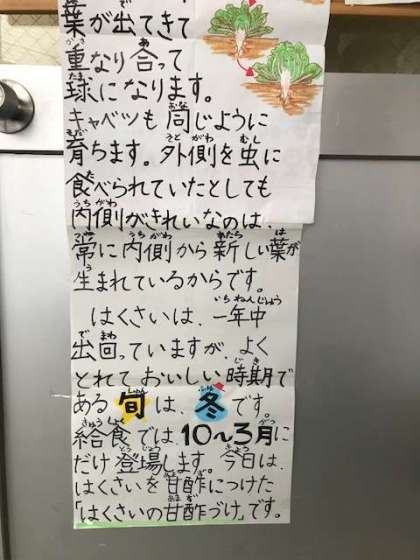 葉が出てきて
重なり合って
球になります。
キャベツも同じように
育ちます。外側を虫に
食べられていたとしても
内側がきれいなのは、
常に内側から新しい葉が
生まれているからです。
はくさいは、一年中
出回っていますが、よく
とれておいしい時期で
ある旬は、冬です。
給食では、10〜3月に
だけ登場します。今日は、
はくさいを甘酢につけた
「はくさいの甘酢づけ」です。